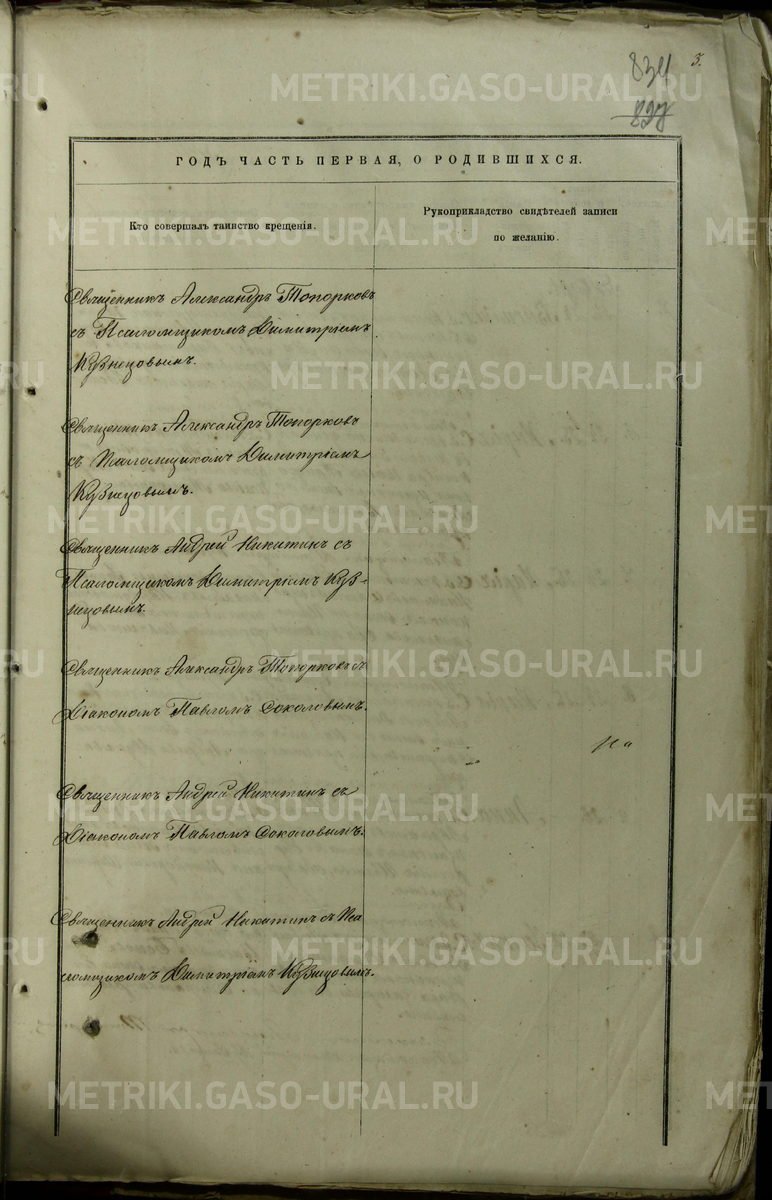 834
3.
828
ГОДЪ ЧАСТЬ ПЕРВАЯ, О РОДИВШИХСЯ.
Кто совершалъ таинство крещенія.
Рукоприкладство свидѣтелей записи
по желанію.
Священникъ Александръ Топорковъ
съ Псаломщикомъ Димитріемъ
Кузнецовымъ.
Священникъ Александръ Топорковъ
съ Псаломщикомъ Димитріемъ
Кузнецовымъ.
Священникъ Андрей Никитинъ съ
Псаломщикомъ Димитріемъ Куз-
нецовымъ.
Священникъ Александръ Топорковъ съ
Діакономъ Павломъ Соколовымъ.
Священникъ Андрей Никитинъ съ
Діакономъ Павломъ Соколовымъ.
Священникъ Андрей Никитинъ съ Пса
ломщикомъ Димитріемъ Кузнецовымъ.
METRIKI.GASO-URAL.RU